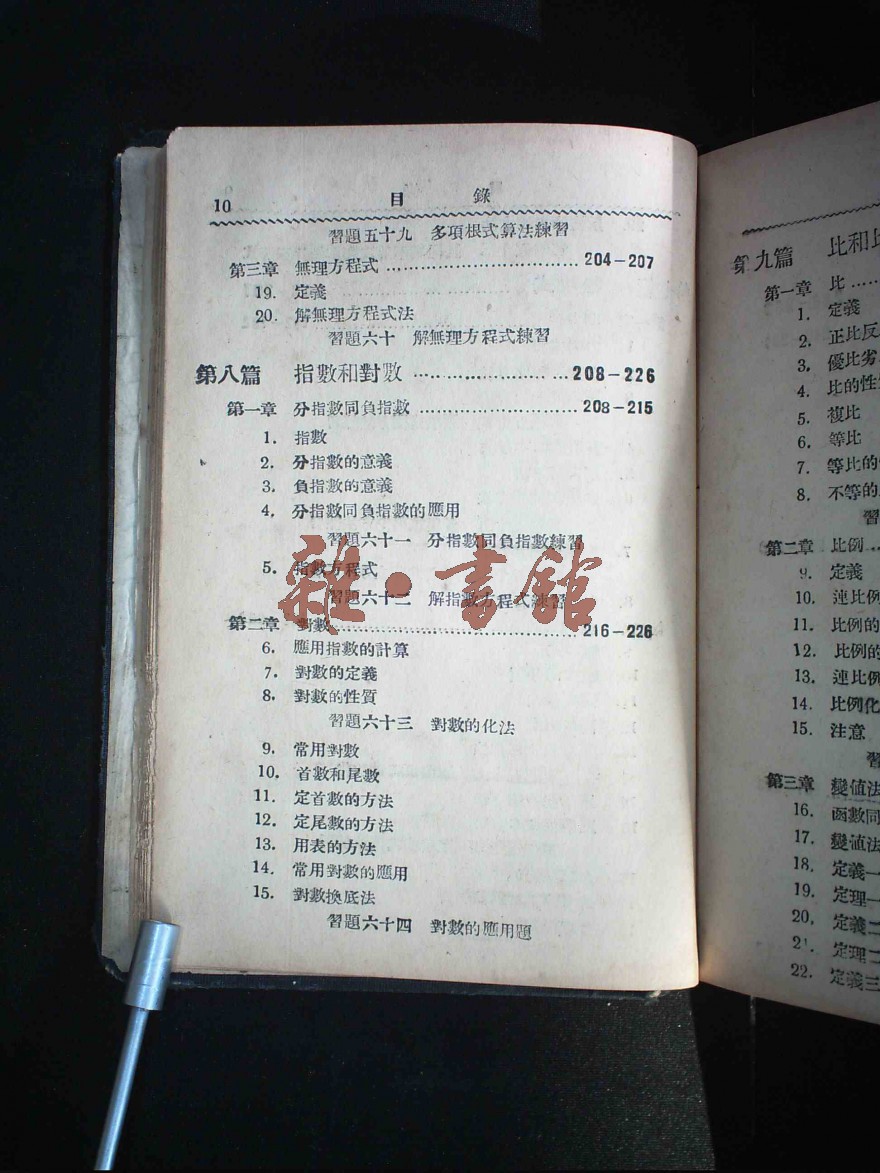 10 目 錄
習題五十九 多項根式算法練習
第三章 無理方程式 204—207
19. 定義
20. 解無理方程式法
習題六十 解無理方程式練習
第八篇 指數和對數 208—226
第一章 分指數同負指數 208—215
1. 指數
2. 分指數的意義
3. 負指數的意義
4. 分指數同負指數的應用
習題六十一 分指數同負指數練習
5. 指數方程式
習題六十二 解指數方程式練習
第二章 對數 216—226
6. 應用指數的計算
7. 對數的定義
8. 對數的性質
習題六十三 對數的化法
9. 常用對數
10. 首數和尾數
11. 定首數的方法
12. 定尾數的方法
13. 用表的方法
14. 常用對數的應用
15. 對數換底法
習題六十四 對數的應用題
雜·書館
第九篇 比和比
第一章 比
1. 定義
2. 正比反
3. 優比劣
4. 比的性
5. 複比
6. 等比
7. 等比的
8. 不等的
習
第二章 比例
9. 定義
10. 連比例
11. 比例的
12. 比例的
13. 連比例
14. 比例化
15. 注意
習
第三章 變値法
16. 函數同
17. 變値法
18. 定義一
19. 定理一
20. 定義二
21. 定理二
22. 定義三